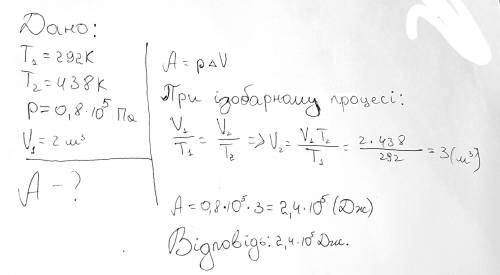 Дано:
T₁ = 292K
T₂ = 438K
P = 0,8·10⁵ Па
V₁ = 2 м³
A – ?
A = p△V
При ізобарному процесі:
V₁/T₁ = V₂/T₂ => V₂ = V₁T₂/T₁ = 2·438/292 = 3 (м³)
A = 0,8·10⁵·3 = 2,4·10⁵ (Дж)
Відповідь: 2,4·10⁵ Дж.